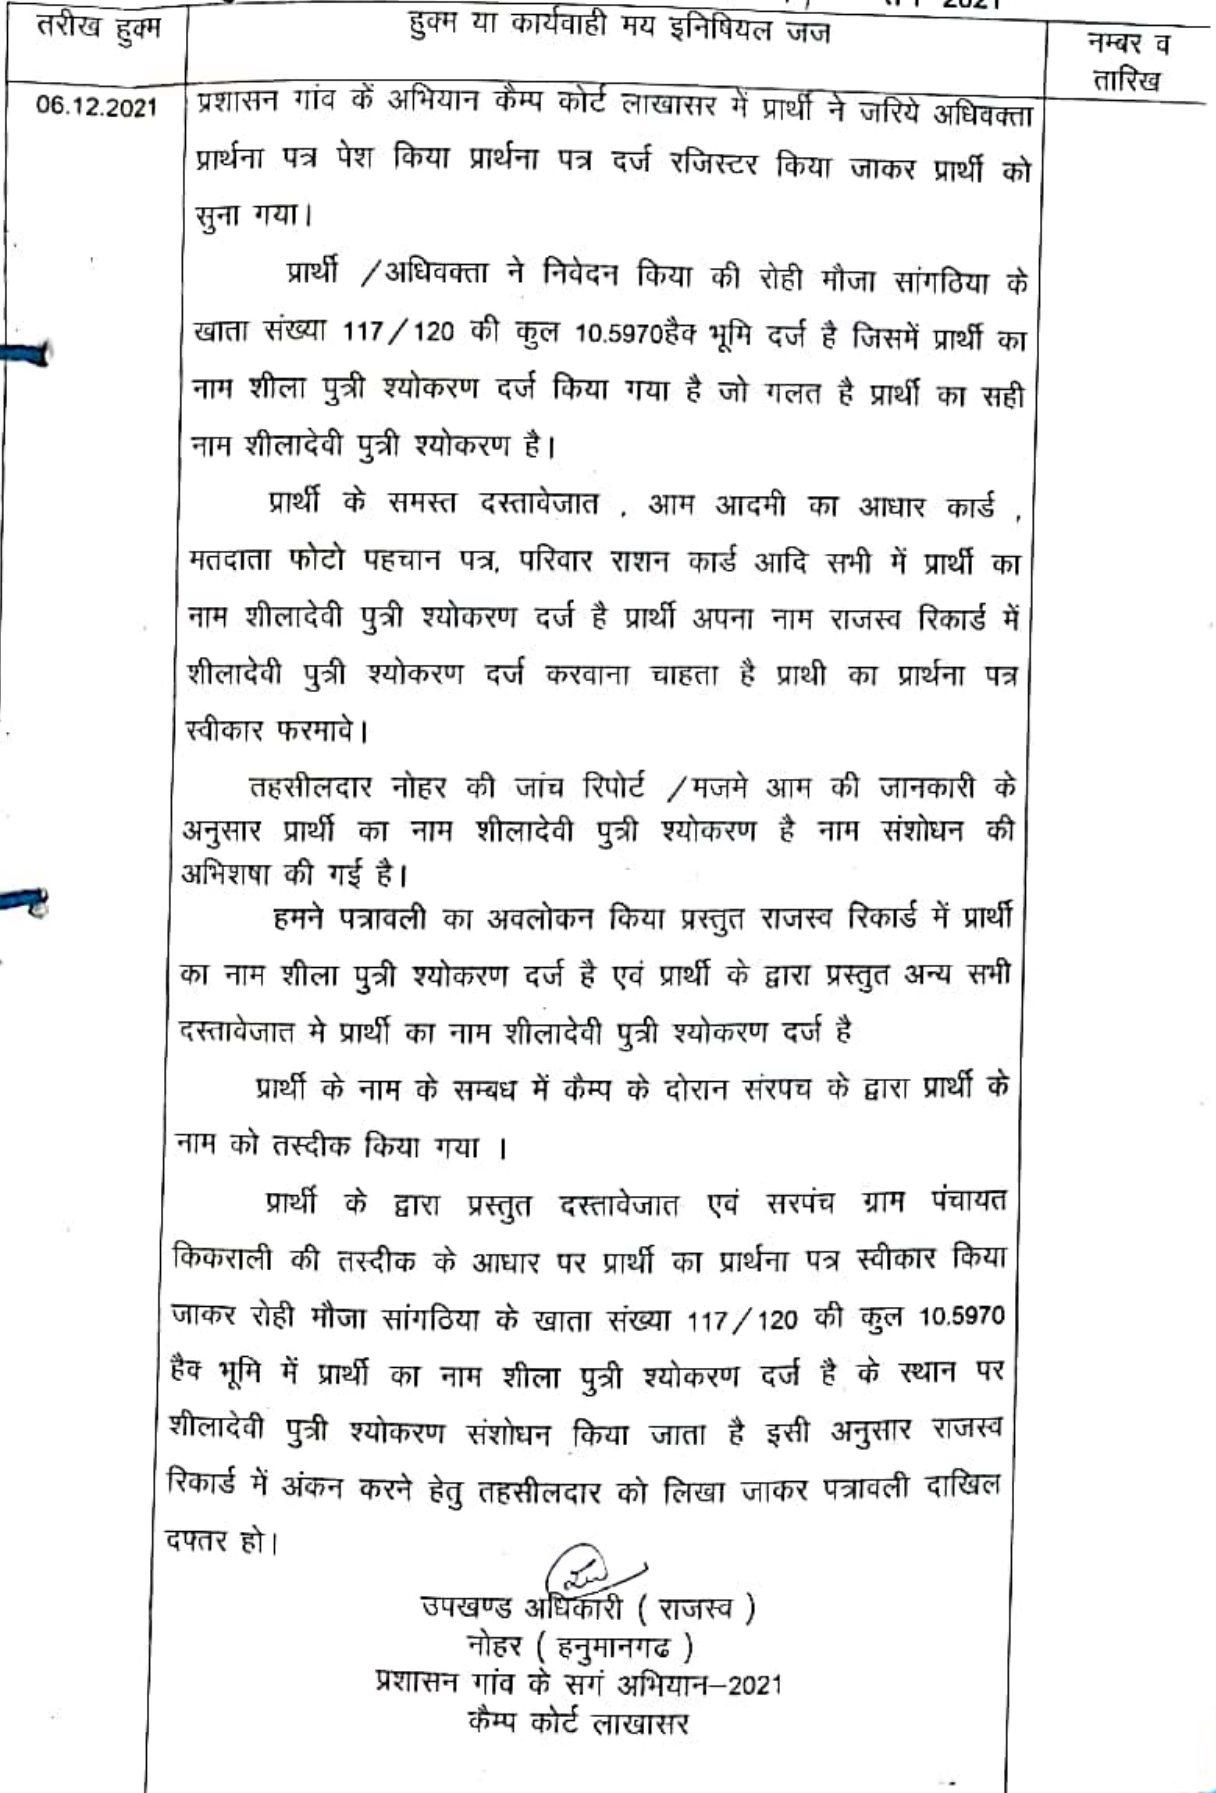 2021
तरीख हुक्म
हुक्म या कार्यवाही मय इनिषियल जज
नम्बर व
तारिख
06.12.2021
प्रशासन गांव कें अभियान कैम्प कोर्ट लाखासर में प्रार्थी ने जरिये अधिवक्ता
प्रार्थना पत्र पेश किया प्रार्थना पत्र दर्ज रजिस्टर किया जाकर प्रार्थी को
सुना गया।
प्रार्थी /अधिवक्ता ने निवेदन किया की रोही मौजा सांगठिया के
खाता संख्या 117/120 की कुल 10.5970हैक भूमि दर्ज है जिसमें प्रार्थी का
नाम शीला पुत्री श्योकरण दर्ज किया गया है जो गलत है प्रार्थी का सही
नाम शीलादेवी पुत्री श्योकरण है।
प्रार्थी के समस्त दस्तावेजात , आम आदमी का आधार कार्ड ,
मतदाता फोटो पहचान पत्र, परिवार राशन कार्ड आदि सभी में प्रार्थी का
नाम शीलादेवी पुत्री श्योकरण दर्ज है प्रार्थी अपना नाम राजस्व रिकार्ड में
शीलादेवी पुत्री श्योकरण दर्ज करवाना चाहता है प्राथी का प्रार्थना पत्र
स्वीकार फरमावे।
तहसीलदार नोहर की जांच रिपोर्ट /मजमे आम की जानकारी के
अनुसार प्रार्थी का नाम शीलादेवी पुत्री श्योकरण है नाम संशोधन की
अभिशषा की गई है।
हमने पत्रावली का अवलोकन किया प्रस्तुत राजस्व रिकार्ड में प्रार्थी
का नाम शीला पुत्री श्योकरण दर्ज है एवं प्रार्थी के द्वारा प्रस्तुत अन्य सभी
दस्तावेजात मे प्रार्थी का नाम शीलादेवी पुत्री श्योकरण दर्ज है
प्रार्थी के नाम के सम्बध में कैम्प के दोरान संरपच के द्वारा प्रार्थी के
नाम को तस्दीक किया गया ।
प्रार्थी के द्वारा प्रस्तुत दस्तावेजात एवं सरपंच ग्राम पंचायत
किकराली की तस्दीक के आधार पर प्रार्थी का प्रार्थना पत्र स्वीकार किया
जाकर रोही मौजा सांगठिया के खाता संख्या 117/120 की कुल 10.5970
हैक भूमि में प्रार्थी का नाम शीला पुत्री श्योकरण दर्ज है के स्थान पर
शीलादेवी पुत्री श्योकरण संशोधन किया जाता है इसी अनुसार राजस्व
रिकार्ड में अंकन करने हेतु तहसीलदार को लिखा जाकर पत्रावली दाखिल
दफ्तर हो।
उपखण्ड अधिकारी ( राजस्व )
नोहर ( हनुमानगढ )
प्रशासन गांव के सगं अभियान–2021
कैम्प कोर्ट लाखासर